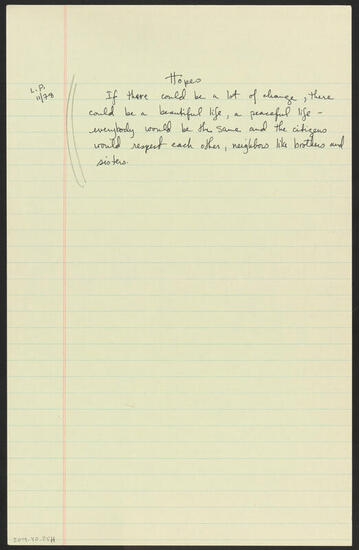 Hopes
L.P.
11/78
If there could be a lot of change, there
could be a beautiful life, a peaceful life -
everybody would be the same and the citizens
would respect each other, neighbors like brothers and
sisters.